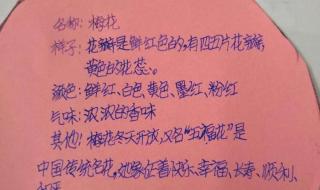 名称:梅花
样子:花瓣是鲜红色的,有四五片花瓣,
黄色的花蕊。
颜色:鲜红、白色、黄色、墨红、粉红
气味:浓浓的香味
其他:梅花冬天开放,又名“五福花”是
中国传统名花,她象征着快乐、幸福、长寿、顺利、